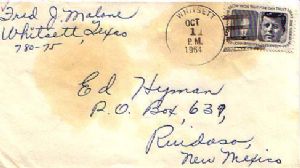 Fred J. Malone
Whitsett, Texas
780-75
WHITSETT
OCT
1
P.M.
1964
Ed Hyman
P.O. Box, 639,
Ruidoso,
New Mexico